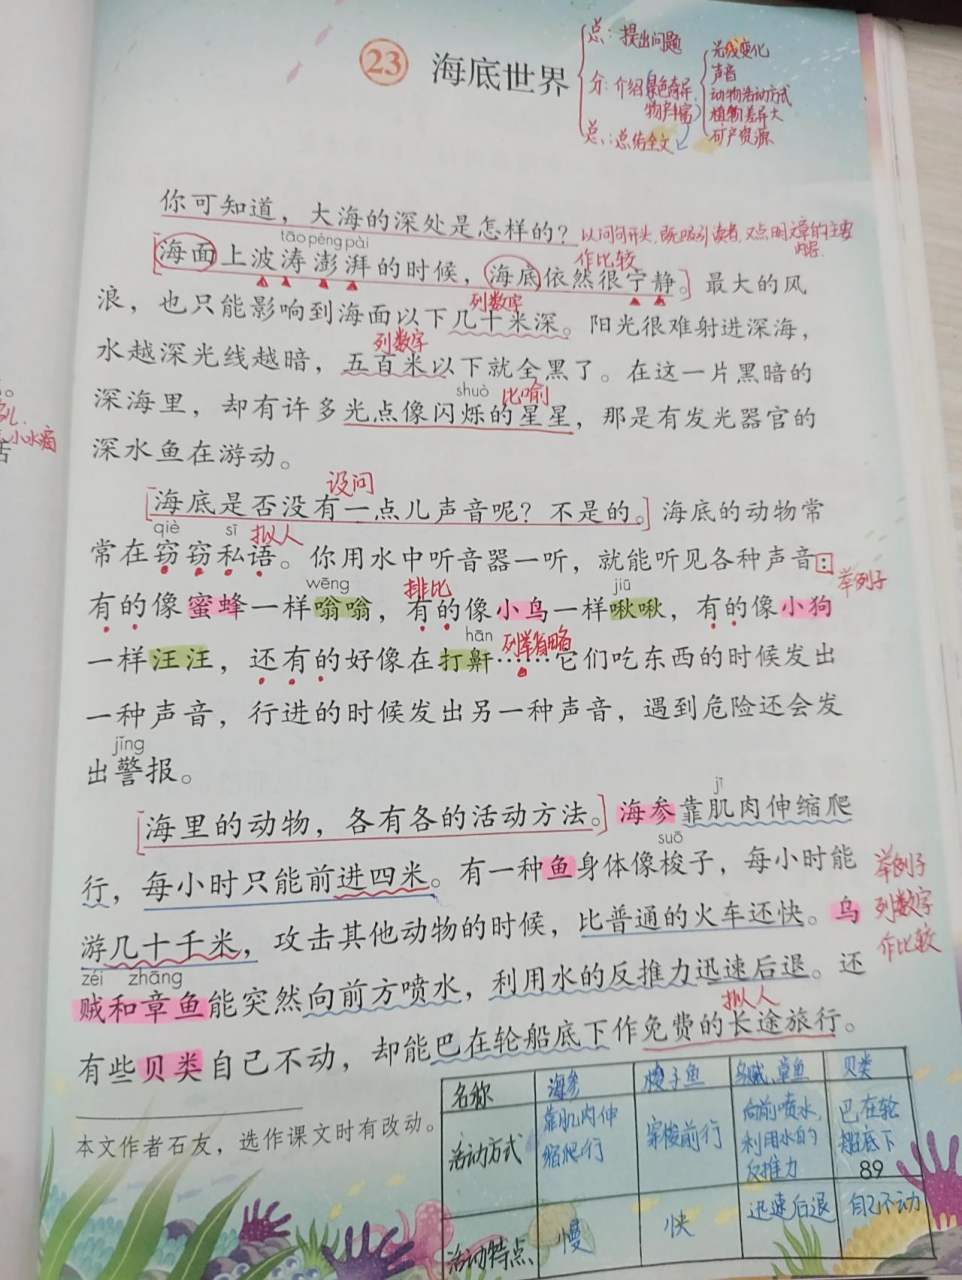 23 海底世界
总：提出问题
分：介绍景色奇异，物产丰富
总：总结全文
光线变化
声音
动物活动方式
植物差异大
矿产资源
你可知道，大海的深处是怎样的？
以问句开头，既吸引读者，又点明文章的主要内容.
tāo péng pài
作比较
海面上波涛澎湃的时候，海底依然很宁静。最大的风
列数字
浪，也只能影响到海面以下几十米深。阳光很难射进深海，
列数字
水越深光线越暗，五百米以下就全黑了。在这一片黑暗的
shuò
比喻
深海里，却有许多光点像闪烁的星星，那是有发光器官的
小水滴
深水鱼在游动。
设问
海底是否没有一点儿声音呢？不是的。海底的动物常
qiè sī
拟人
常在窃窃私语。你用水中听音器一听，就能听见各种声音：
举例子
wēng jiū
排比
有的像蜜蜂一样嗡嗡，有的像小鸟一样啾啾，有的像小狗
hān
列举省略
一样汪汪，还有的好像在打鼾……它们吃东西的时候发出
一种声音，行进的时候发出另一种声音，遇到危险还会发
jǐng
出警报。
jī
海里的动物，各有各的活动方法。海参靠肌肉伸缩爬
suō
行，每小时只能前进四米。有一种鱼身体像梭子，每小时能
举例子
列数字
作比较
游几十千米，攻击其他动物的时候，比普通的火车还快。乌
zéi zhāng
贼和章鱼能突然向前方喷水，利用水的反推力迅速后退。还
拟人
有些贝类自己不动，却能巴在轮船底下作免费的长途旅行。
本文作者石友，选作课文时有改动。
名称 海参 梭子鱼 乌贼、章鱼 贝类
活动方式 靠肌肉伸缩爬行 穿梭前行 向前喷水，利用水的反推力 巴在轮船底下
活动特点 慢 快 迅速后退 自己不动
89